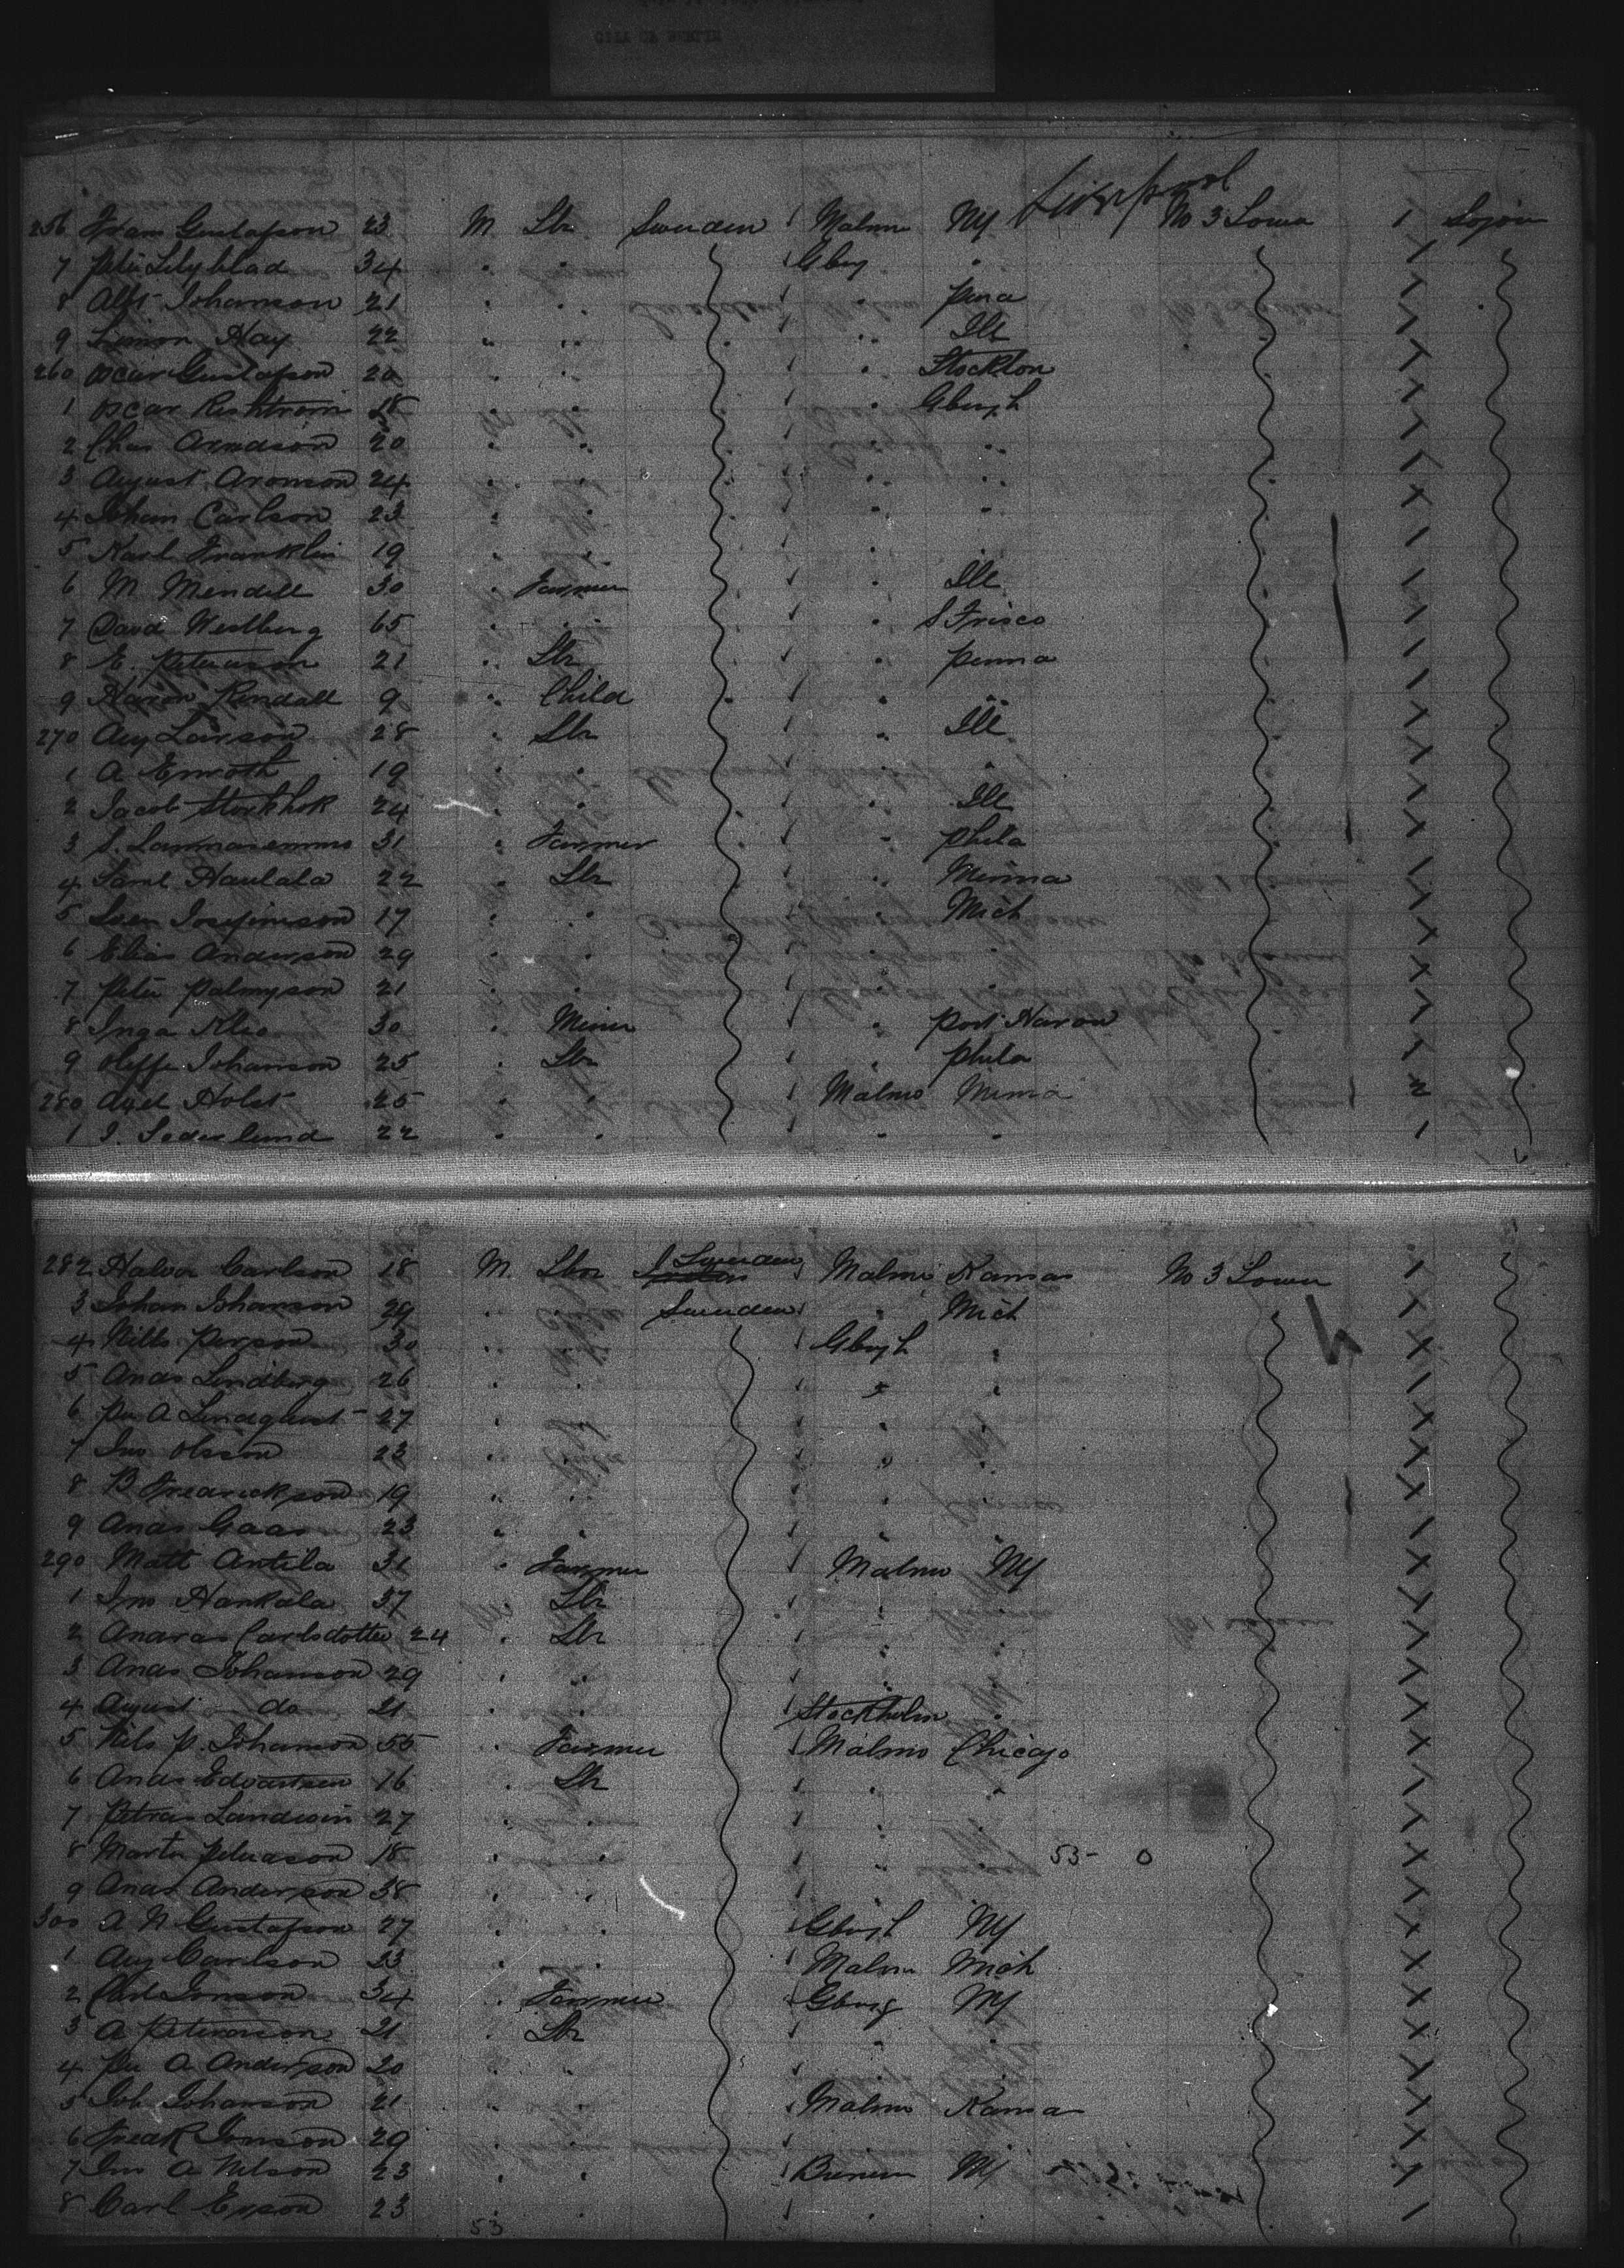 Liverpool
256 Fram Gustafson 23 M Lbr Sweeden Malmo NY No 3 Lower 1 Sojou
7 Peter Lilyblad 34 " " Gbg " 1
8 Albt Johanson 21 " " " Pena 1
9 Simon Hay 22 " " " Ill 1
260 Oscar Gustafson 20 " " " Stockton 1
1 Oscar 18 " " " Gburgh 1
2 Chas Arndson 20 " " " " 1
3 August Aronson 24 " " " " 1
4 Johan Carlson 23 " " " " 1
5 Karl Franklin 19 " " " " 1
6 M Mendell 30 " Farmer " Ill 1
7 David Westberg 65 " " " S Frisco 1
8 E. Peterson 21 " Lbr " Penna 1
9 Randall 9 " Child " " 1
270 Aug Larson 28 " Lbr " Ill 1
1 A Enroth 19 " " " " 1
2 Jacob Storkhok 24 " " " Ill 1
3 S. 31 " Farmer " Phila 1
4 Saml Haulala 22 " Lbr " Minna 1
5 Sven 17 " " " Mich 1
6 Elias Anderson 29 " " " " 1
7 Peter Palmyson 21 " " " " 1
8 Inga Klio 30 " Miner " Port Haron 1
9 Oleffe Johanson 25 " Lbr " Phila 1
280 Axel Holst 25 " " Malmo Minna 2
1 J. Soderlund 22 " " " " 1
282 Halvor Carlson 18 M Lbr Sweeden Malmo Kansas No 3 Lower 1
3 Johan Johanson 29 " " Sweeden " Mich 1
4 Nills Person 30 " " Gburgh " 1
5 Andr Lindberg 26 " " " " 1
6 Per A Lindquist 27 " " " " 1
7 Jno Olsson 23 " " " " 1
8 B Fredrickson 19 " " " " 1
9 Andr Gaas 23 " " " " 1
290 Matt Antila 31 " Farmer Malmo NY 1
1 Jno Hankala 37 " Lbr " " 1
2 Andras Carlsdotter 24 " Lbr " " 1
3 Andr Johanson 29 " " " " 1
4 August do 21 " " Stockholm " 1
5 Nils P. Johanson 55 " Farmer Malmo Chicago 1
6 Andr Edvartsen 16 " Lbr " " 1
7 Petra Landwin 27 " " " " 1
8 Martn Peterson 18 " " " " 53- 0 1
9 Andr Anderson 38 " " " " 1
300 A N Gustafson 27 " " Gburgh NY 1
1 Aug Carlson 23 " " Malmo Mich 1
2 Carl Jonson 34 " Farmer Gburg NY 1
3 A Peterson 21 " Lbr " " 1
4 Per A Anderson 20 " " " " 1
5 Joh Johanson 21 " " Malmo Kansa 1
6 Fredk Jonson 29 " " " " 1
7 Jno A Nelson 23 " " Bremen NY 1
8 Carl Erson 23 " " " " 1
53